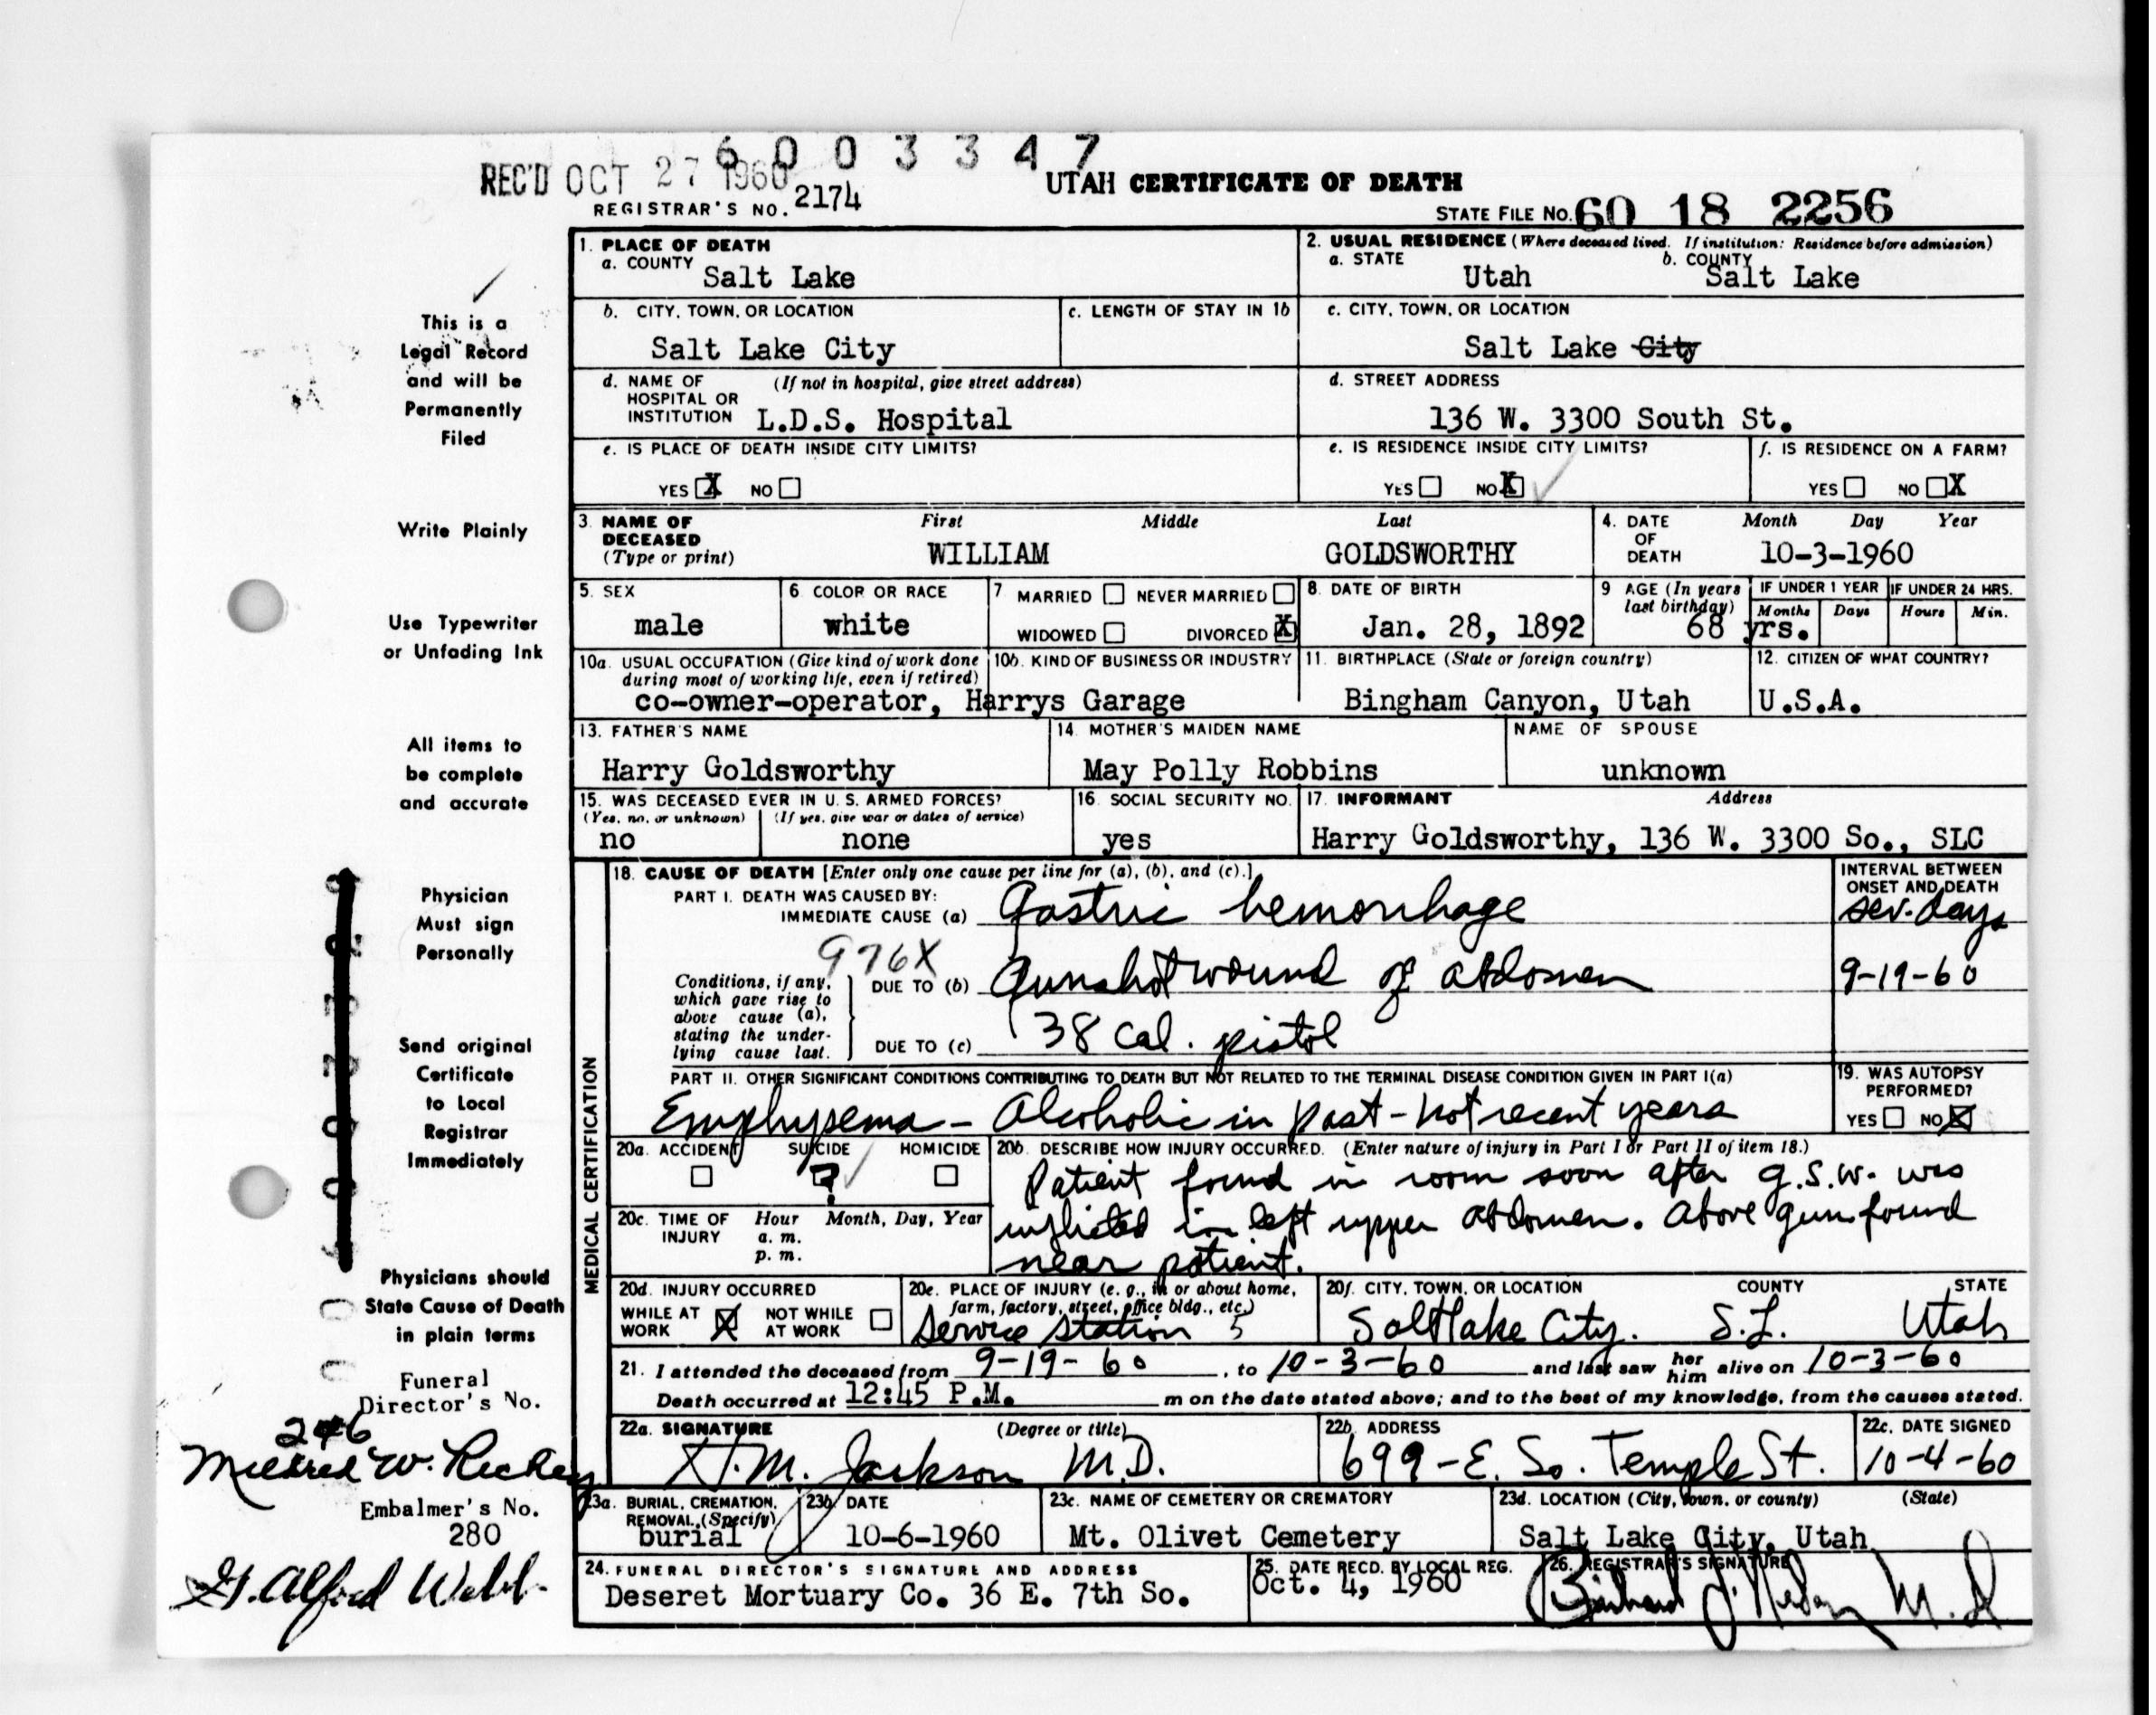 6003347
REC'D OCT 27 1960
UTAH CERTIFICATE OF DEATH
REGISTRAR'S NO. 2174
STATE FILE NO. 60 18 2256
This is a
Legal Record
and will be
Permanently
Filed
Write Plainly
Use Typewriter
or Unfading Ink
All items to
be complete
and accurate
Physician
Must sign
Personally
Send original
Certificate
to Local
Registrar
Immediately
Physicians should
State Cause of Death
in plain terms
Funeral
Director's No.
246
Mildred W.
Embalmer's No.
280
Alford Webb
1. PLACE OF DEATH
a. COUNTY Salt Lake
2. USUAL RESIDENCE (Where deceased lived. If institution: Residence before admission)
a. STATE Utah b. COUNTY Salt Lake
b. CITY, TOWN, OR LOCATION Salt Lake City
c. LENGTH OF STAY IN 1b
c. CITY, TOWN, OR LOCATION Salt Lake City
d. NAME OF HOSPITAL OR INSTITUTION (If not in hospital, give street address)
L.D.S. Hospital
d. STREET ADDRESS
136 W. 3300 South St.
e. IS PLACE OF DEATH INSIDE CITY LIMITS?
YES X NO
e. IS RESIDENCE INSIDE CITY LIMITS?
YES NO X
f. IS RESIDENCE ON A FARM?
YES NO X
3. NAME OF DECEASED (Type or print)
First Middle Last
WILLIAM GOLDSWORTHY
4. DATE OF DEATH Month Day Year
10-3-1960
5. SEX
male
6. COLOR OR RACE
white
7 MARRIED NEVER MARRIED
WIDOWED DIVORCED X
8. DATE OF BIRTH
Jan. 28, 1892
9 AGE (In years last birthday)
68 yrs.
IF UNDER 1 YEAR IF UNDER 24 HRS.
Months Days Hours Min.
10a. USUAL OCCUPATION (Give kind of work done during most of working life, even if retired)
10b. KIND OF BUSINESS OR INDUSTRY
co-owner-operator, Harrys Garage
11. BIRTHPLACE (State or foreign country)
Bingham Canyon, Utah
12. CITIZEN OF WHAT COUNTRY?
U.S.A.
13. FATHER'S NAME
Harry Goldsworthy
14. MOTHER'S MAIDEN NAME
May Polly Robbins
NAME OF SPOUSE
unknown
15. WAS DECEASED EVER IN U.S. ARMED FORCES?
(Yes, no, or unknown) (If yes, give war or dates of service)
no none
16. SOCIAL SECURITY NO.
yes
17. INFORMANT Address
Harry Goldsworthy, 136 W. 3300 So., SLC
MEDICAL CERTIFICATION
18. CAUSE OF DEATH [Enter only one cause per line for (a), (b), and (c).]
INTERVAL BETWEEN ONSET AND DEATH
PART I. DEATH WAS CAUSED BY:
IMMEDIATE CAUSE (a) Gastric hemorrhage sev. days
976X
Conditions, if any, which gave rise to above cause (a), stating the underlying cause last.
DUE TO (b) Gunshot wound of abdomen 9-19-60
DUE TO (c) 38 cal. pistol
PART II. OTHER SIGNIFICANT CONDITIONS CONTRIBUTING TO DEATH BUT NOT RELATED TO THE TERMINAL DISEASE CONDITION GIVEN IN PART I(a)
Emphysema - Alcoholic in past - not recent years
19. WAS AUTOPSY PERFORMED?
YES NO X
20a. ACCIDENT SUICIDE HOMICIDE
?
20b. DESCRIBE HOW INJURY OCCURRED. (Enter nature of injury in Part I or Part II of item 18.)
Patient found in room soon after g.s.w. was
inflicted in left upper abdomen. Above gun found
near patient.
20c. TIME OF INJURY Hour Month, Day, Year
a. m.
p. m.
20d. INJURY OCCURRED
WHILE AT WORK X NOT WHILE AT WORK
20e. PLACE OF INJURY (e. g., in or about home, farm, factory, street, office bldg., etc.)
Service Station 5
20f. CITY, TOWN, OR LOCATION COUNTY STATE
Salt Lake City. S.L. Utah
21. I attended the deceased from 9-19-60, to 10-3-60 and last saw her him alive on 10-3-60
Death occurred at 12:45 P.M. m on the date stated above; and to the best of my knowledge, from the causes stated.
22a. SIGNATURE (Degree or title)
H.M. Jackson M.D.
22b. ADDRESS
699-E. So. Temple St.
22c. DATE SIGNED
10-4-60
23a. BURIAL, CREMATION, REMOVAL, (Specify)
burial
23b. DATE
10-6-1960
23c. NAME OF CEMETERY OR CREMATORY
Mt. Olivet Cemetery
23d. LOCATION (City, town, or county) (State)
Salt Lake City, Utah
24. FUNERAL DIRECTOR'S SIGNATURE AND ADDRESS
Deseret Mortuary Co. 36 E. 7th So.
25. DATE RECD. BY LOCAL REG.
Oct. 4, 1960
26. REGISTRAR'S SIGNATURE
M.D.